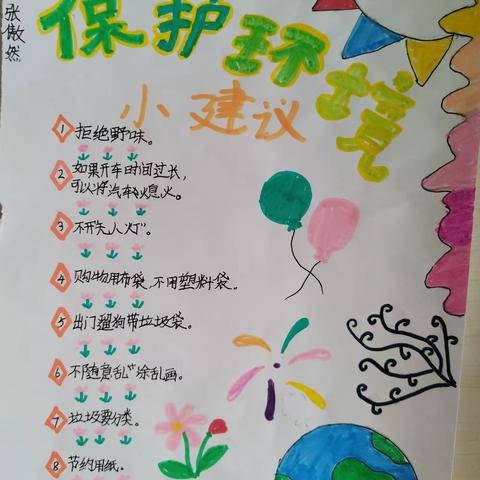 张傲然
保护环境
小建议
1 拒绝野味。
2 如果开车时间过长,
可以将汽车熄火。
3 不开“无人灯”。
4 购物用布袋,不用塑料袋。
5 出门遛狗带垃圾袋。
6 不随意乱“涂乱画。
7 垃圾要分类。
8 节约用纸。